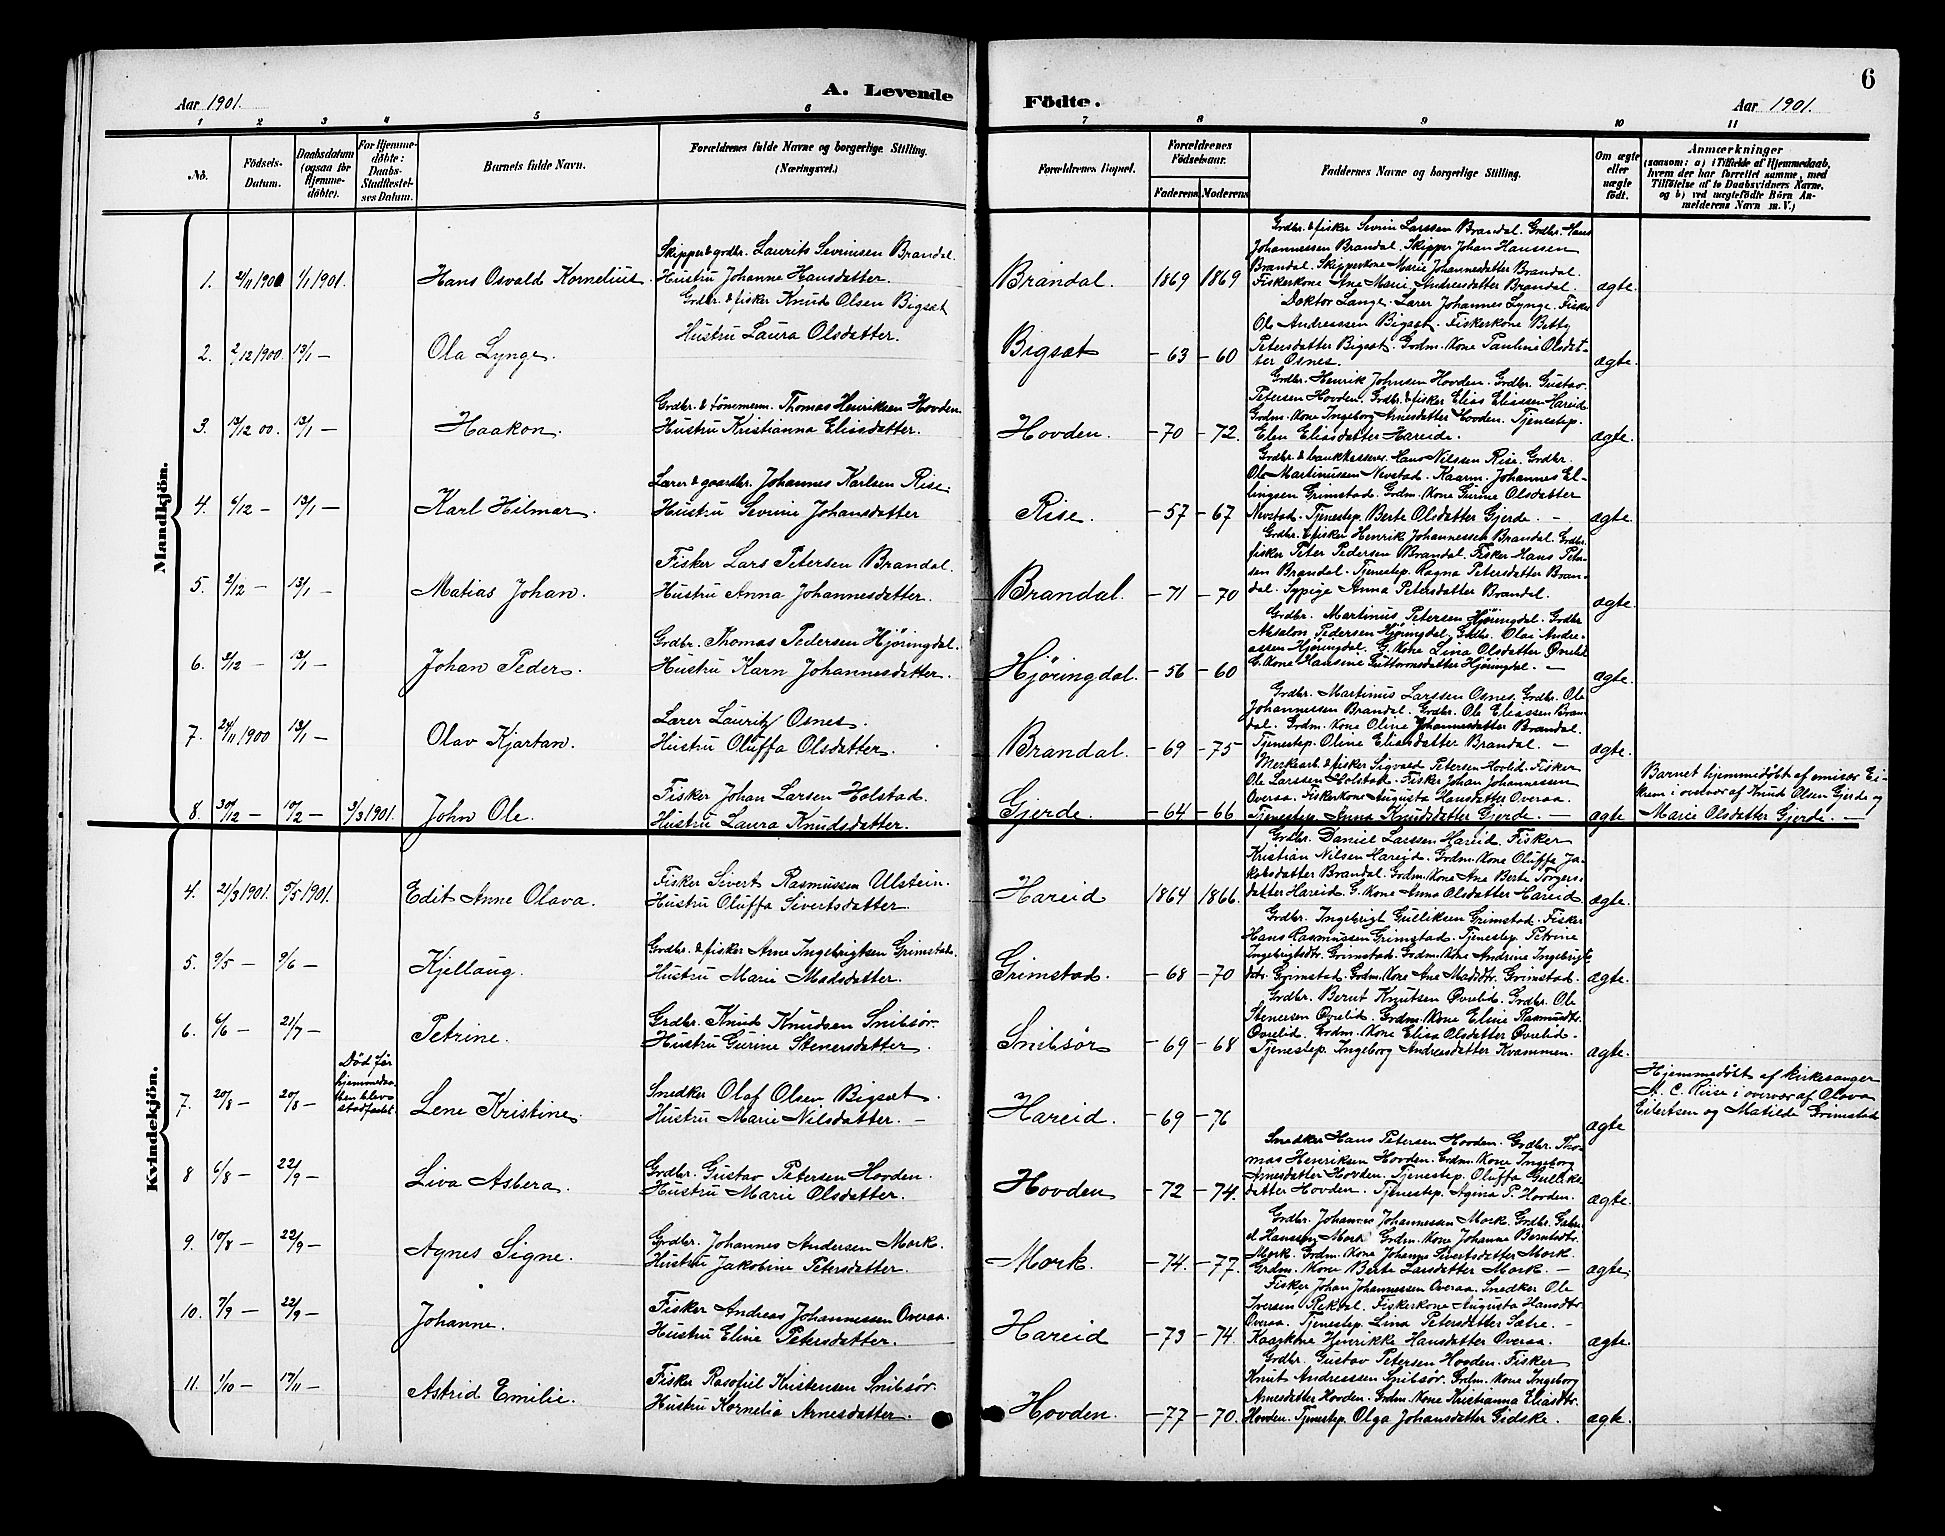 Aar 1901.
A. Levende Födte.
Aar 1901.
6
1 2 3 4 5 6 7 8 9 10 11
No.
Födsels-Datum.
Daabsdatum (ogsaa for Hjemmedöbte).
For Hjemmedöbte: Daabs-Stadfæstelses Datum.
Barnets fulde Navn.
Forældrenes fulde Navne og borgerlige Stilling. (Næringsvei.)
Forældrenes Bopæl.
Forældrenes Födselsaar.
Faderens Moderens
Faddernes Navne og borgerlige Stilling.
Om ægte eller uægte födt.
Anmærkninger
(saasom: a) i Tilfælde af Hjemmedaab, hvem der har forrettet samme, med Tilföielse af to Daabsvidners Navne, og b) ved uægtefödte Börn Anmelderens Navn m. V.)
Mandkjön.
1. 21/11 1900 1/1 1901. Hans Osvald Kornelius
Skipper & grdbr. Laurits Sevrinsen Brandal.
Hustru Johanne Hansdatter.
Brandal. 1869 1869
Grdbr. & fisker Sevrin Larssen Brandal. Grdbr. Hans
Johannessen Brandal. Skipper Johan Hanssen
Brandal. Skipperkone Marie Johannesdatter Brandal.
Fiskerkone Ane Marie Andreasdatter Brandal.
ægte.
2. 2/12 1900. 13/1 — Ola Lynge.
Grdbr. & fisker Knud Olsen Bigsæt
Hustru Laura Olsdatter.
Bigsæt — 63 — 60
Doktor Lange. Lærer Johannes Lynge. Fisker
Ole Andreassen Bigsæt. Fiskerkone Betty
Petersdatter Bigsæt. Grdm. Kone Pauline Olsdat-
ter Osnes.
ægte.
3. 13/12 00. 13/1 — Haakon.
Grdbr. & tönnem. Thomas Henriksen Hovden.
Hustru Kristianna Eliasdatter.
Hovden. — 70 — 72.
Grdbr. Henrik Johnsen Hovden. Grdbr. Gustav
Petersen Hovden. Grdbr. & fisker Elias Eliassen Hareid.
Grdm. Kone Ingeborg Arnesdatter Hovden. Tjenestep.
Elen Eliasdatter Hareide.
ægte.
4. 6/12 — 13/1 — Karl Hilmar.
Lærer & gaardbr. Johannes Karlsen Rise.
Hustru Sevrine Johansdatter
Rise. — 57 — 67
Grdbr. & bankkasserer Hans Nilssen Rise. Grdbr.
Ole Martinussen Nevstad. Kaarm. Johannes El-
lingsen Grimstad. Grdm. Kone Gurine Olsdatter
Nevstad. Tjenestep. Berte Olsdatter Gjerde. —
ægte.
5. 2/12 — 13/1 — Matias Johan.
Fisker Lars Petersen Brandal.
Hustru Anna Johannesdatter.
Brandal. — 71 — 70
Grdbr. & fisker Henrik Johannessen Brandal. Grdbr.
fisker Peter Pedersen Brandal. Fisker Hans Peter-
sen Brandal. Tjenestep. Ragna Petersdatter Bran-
dal. Sypige Anna Petersdatter Brandal.
ægte.
6. 3/12 — 13/1 — Johan Peder.
Grdbr. Thomas Pedersen Hjöringdal.
Hustru Karn Johannesdatter.
Hjöringdal. — 56 — 60
Grdbr. Martinus Petersen Hjöringdal. Grdbr.
Absalon Pedersen Hjöringdal. Grdbr. Olai Andre-
assen Hjöringdal. G. Kone Lina Olsdatter Övrelid
G. Kone Hansine Guttormsdatter Hjöringdal. —
ægte.
7. 24/11 1900 13/1 — Olav Kjartan.
Lærer Lauritz Osnes.
Hustru Oluffa Olsdatter.
Brandal. — 69 — 75
Grdbr. Martinus Larssen Osnes. Grdbr. Ole
Johannessen Brandal. Grdbr. Ole Eliassen Bran-
dal. Grdm. Kone Oline Johannesdatter Brandal.
Tjenestep. Oline Eliasdatter Brandal. —
ægte.
8. 30/12 — 10/2 — 3/3 1901. John Ole.
Fisker Johan Larsen Holstad.
Hustru Laura Knudsdatter.
Gjerde. — 64 — 66
Merkearb. & fisker Sigvald Petersen Hovlid. Fisker
Ole Larssen Holstad. Fisker Johan Johannessen
Overaa. Fiskerkone Augusta Hansdatter Overaa.
Tjenestep. Anna Knudsdatter Gjerde. —
ægte
Barnet hjemmedöbt af emisær Ei-
krem i overvær af Knud Olsen Gjerde og
Marie Olsdatter Gjerde. —
Kvindekjön.
4. 21/3 1901. 5/5 1901. Edit Anne Olava.
Fisker Sivert Rasmussen Ulstein.
Hustru Oluffa Sivertsdatter
Hareid 1864 1866.
Grdbr. Daniel Larssen Hareid. Fisker
Kristian Nilsen Hareid. Grdm. Kone Oluffa Ja-
kobsdatter Brandal. Grdm. Kone Ane Berte Torgers-
datter Hareid. G. Kone Anna Olsdatter Hareid
ægte.
5. 9/5 — 9/6 — Kjellaug.
Grdbr. & fisker Arne Ingebrigtsen Grimstad.
Hustru Marie Madsdatter.
Grimstad. — 68 — 70
Grdbr. Ingebrigt Gulliksen Grimstad. Fisker
Hans Rasmussen Grimstad. Tjenestep. Petrine
Ingebrigtsdtr. Grimstad. Grdm. Kone Andrine Ingebrigts-
dtr. Grimstad. Grdm. Kone Ane Madsdtr. Grimstad.
ægte.
6. 6/6 — 21/7 — Petrine.
Grdbr. Knud Knudsen Snibsör.
Hustru Gurine Stenersdatter.
Snibsör — 69 — 68
Grdbr. Bernt Knutsen Övrelid. Grdbr. Ole
Stenersen Övrelid. Grdm. Kone Eline Rasmusdtr.
Övrelid. Grdm. Kone Elisa Olsdatter Övrelid.
Tjenestep. Ingeborg Andreasdatter Kvammen.
ægte.
7. 20/8 — 20/8 —
Död för
hjemmedaa-
ben blev
stadfæstet.
Lene Kristine.
Snedker Olaf Olsen Bigsæt.
Hustru Marie Nilsdatter. —
Hareid. — 69 — 76
ægte
Hjemmedöbt af kirkesanger
A. C. Riise i overvær af Olava
Eilertsen og Matilde Grimstad
8 6/8 — 22/9 — Liva Asbera.
Grdbr. Gustav Petersen Hovden.
Hustru Marie Olsdatter.
Hovden — 72 — 74.
Snedker Hans Petersen Hovden. Grdbr. Tho-
mas Henriksen Hovden. Grdm. Kone Ingeborg
Arnesdatter Hovden. Tjenestep. Oluffa Gulliks-
datter Hovden. Tjenestep. Agina P. Hovden.
ægte.
9. 10/8 — 22/9 — Agnes Signe.
Grdbr. Johannes Andersen Mork.
Hustru Jakobine Petersdatter.
Mork. — 74. — 77.
Grdbr. Johannes Johannessen Mork. Grdbr. Gabri-
el Hanssen Mork. Grdm. Kone Johanne Berntsdtr.
Mork. Grdm. Kone Johanne Sivertsdatter Mork.
Grdm. Kone Berte Larsdatter Mork. —
ægte.
10. 7/9 — 22/9 — Johanne.
Fisker Andreas Johannessen Overaa.
Hustru Eline Petersdatter.
Hareid — 73 — 74.
Fisker Johan Johannessen Overaa. Snedker Ole
Iversen Röksdal. Fiskerkone Augusta Hansdtr.
Overaa. Tjenestep. Lina Petersdatter Sætre. —
Kaarkone Henrikke Hansdatter Overaa.
ægte.
11. 1/10 — 17/11 — Astrid Emilie.
Fisker Rasofiel Kristensen Snibsör.
Hustru Kornelia Arnesdatter.
Hovden. — 77 — 70.
Grdbr. Gustav Petersen Hovden. Fisker
Knut Andreassen Snibsör. Grdm. Kone Ingeborg
Arnesdatter Hovden. Grdm. Kone Kristianna Eliasdtr.
Hovden. Tjenestep. Olga Johansdatter Gidske.
ægte.